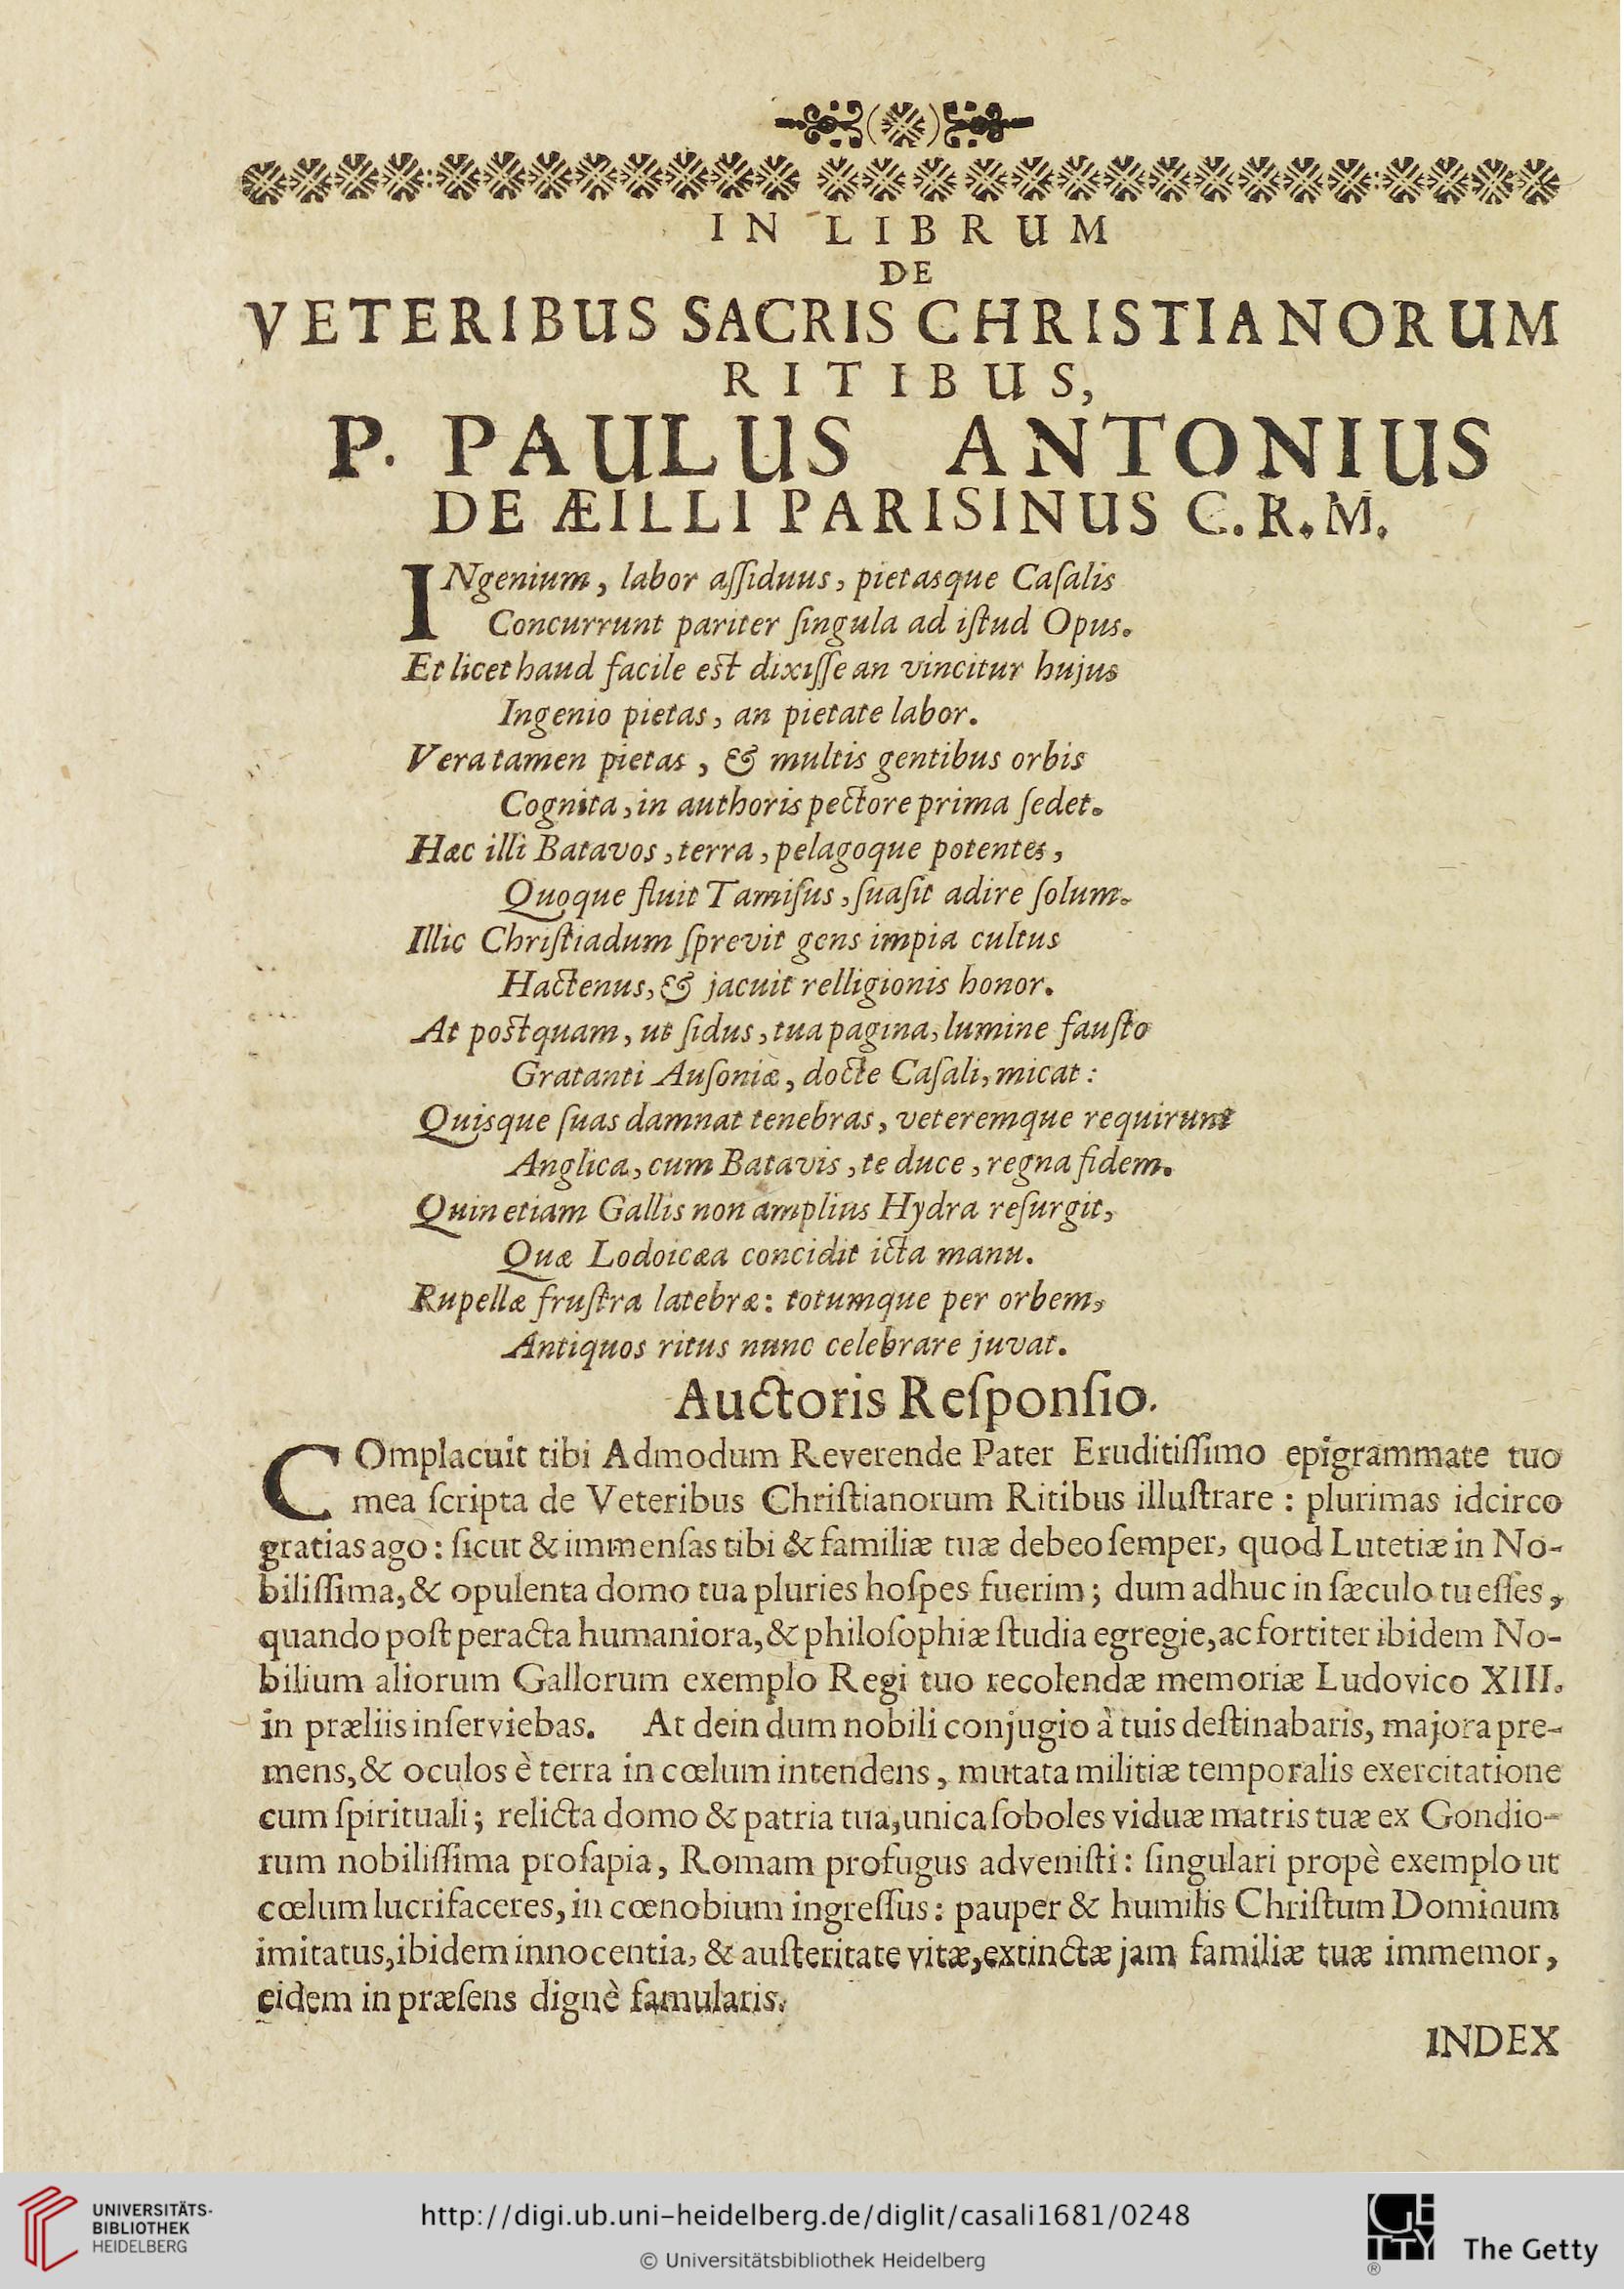 IN LIBRUM
DE
VETERIBUS SACRIS CHRISTIANORUM
RITIBUS,
P. PAULUS ANTONIUS
DE ÆILLI PARISINUS C.R.M.
INgenium, labor aſſiduus, pietasque Caſalis
Concurrunt pariter ſingula ad iſtud Opus.
Et licet haud facile est dixiſſe an vincitur hujus
Ingenio pietas, an pietate labor.
Vera tamen pietas, & multis gentibus orbis
Cognita, in authoris pectore prima ſedet.
Hæc illi Batavos, terra, pelagoque potentes,
Quoque fluit Tamiſus, ſuaſit adire ſolum.
Illic Chriſtiadum ſprevit gens impia cultus
Hactenus, & jacuit relligionis honor.
At postquam, ut ſidus, tua pagina, lumine fauſto
Gratanti Auſoniæ, docte Caſali, micat:
Quisque ſuas damnat tenebras, veteremque requirunt
Anglica, cum Batavis, te duce, regna fidem.
Quin etiam Gallis non amplius Hydra reſurgit,
Quæ Lodoicæa concidit icta manu.
Rupellæ fruſtra latebræ: totumque per orbem,
Antiquos ritus nunc celebrare juvat.
Auctoris Reſponſio.
COmplacuit tibi Admodum Reverende Pater Eruditiſſimo epigrammate tuo
mea ſcripta de Veteribus Chriſtianorum Ritibus illuſtrare: plurimas idcirco
gratias ago: ſicut & immenſas tibi & familiæ tuæ debeo ſemper, quod Lutetiæ in No-
biliſſima, & opulenta domo tua pluries hoſpes fuerim; dum adhuc in ſæculo tu eſſes,
quando poſt peracta humaniora, & philoſophiæ ſtudia egregie, ac fortiter ibidem No-
bilium aliorum Gallorum exemplo Regi tuo recolendæ memoriæ Ludovico XIII.
in præliis inſerviebas. At dein dum nobili conjugio à tuis deſtinabaris, majora pre-
mens, & oculos è terra in cœlum intendens, mutata militiæ temporalis exercitatione
cum ſpirituali; relicta domo & patria tua, unica ſoboles viduæ matris tuæ ex Gondio-
rum nobiliſſima proſapia, Romam profugus adveniſti: ſingulari propè exemplo ut
cœlum lucrifaceres, in cœnobium ingreſſus: pauper & humilis Chriſtum Dominum
imitatus, ibidem innocentia, & auſteritate vitæ, extinctæ jam familiæ tuæ immemor,
eidem in præſens dignè famularis.
INDEX
UNIVERSITÄTS-
BIBLIOTHEK
HEIDELBERG
http://digi.ub.uni-heidelberg.de/diglit/casali1681/0248
© Universitätsbibliothek Heidelberg
GETTY
®
The Getty